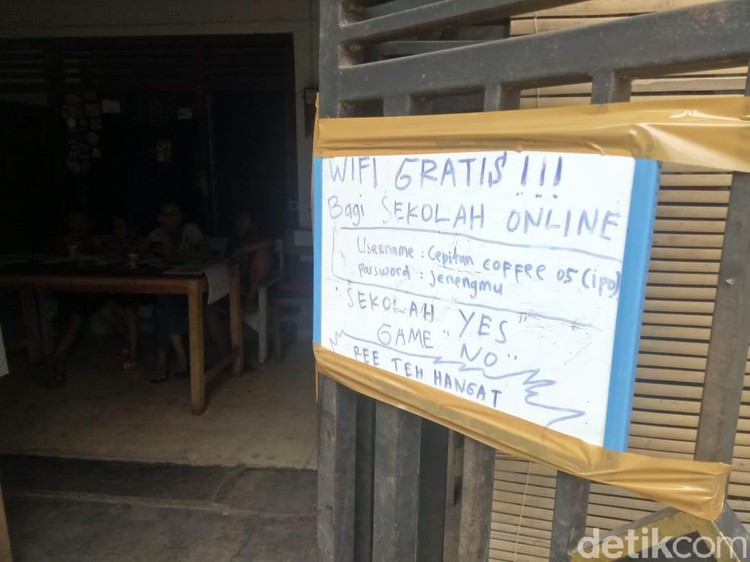 WIFI GRATIS !!!
Bagi SEKOLAH ONLINE
Username : Cepitan coffee 05 (ipo)
password : jenengmu
"SEKOLAH YES"
GAME "NO"
REE TEH HANGAT
detikcom